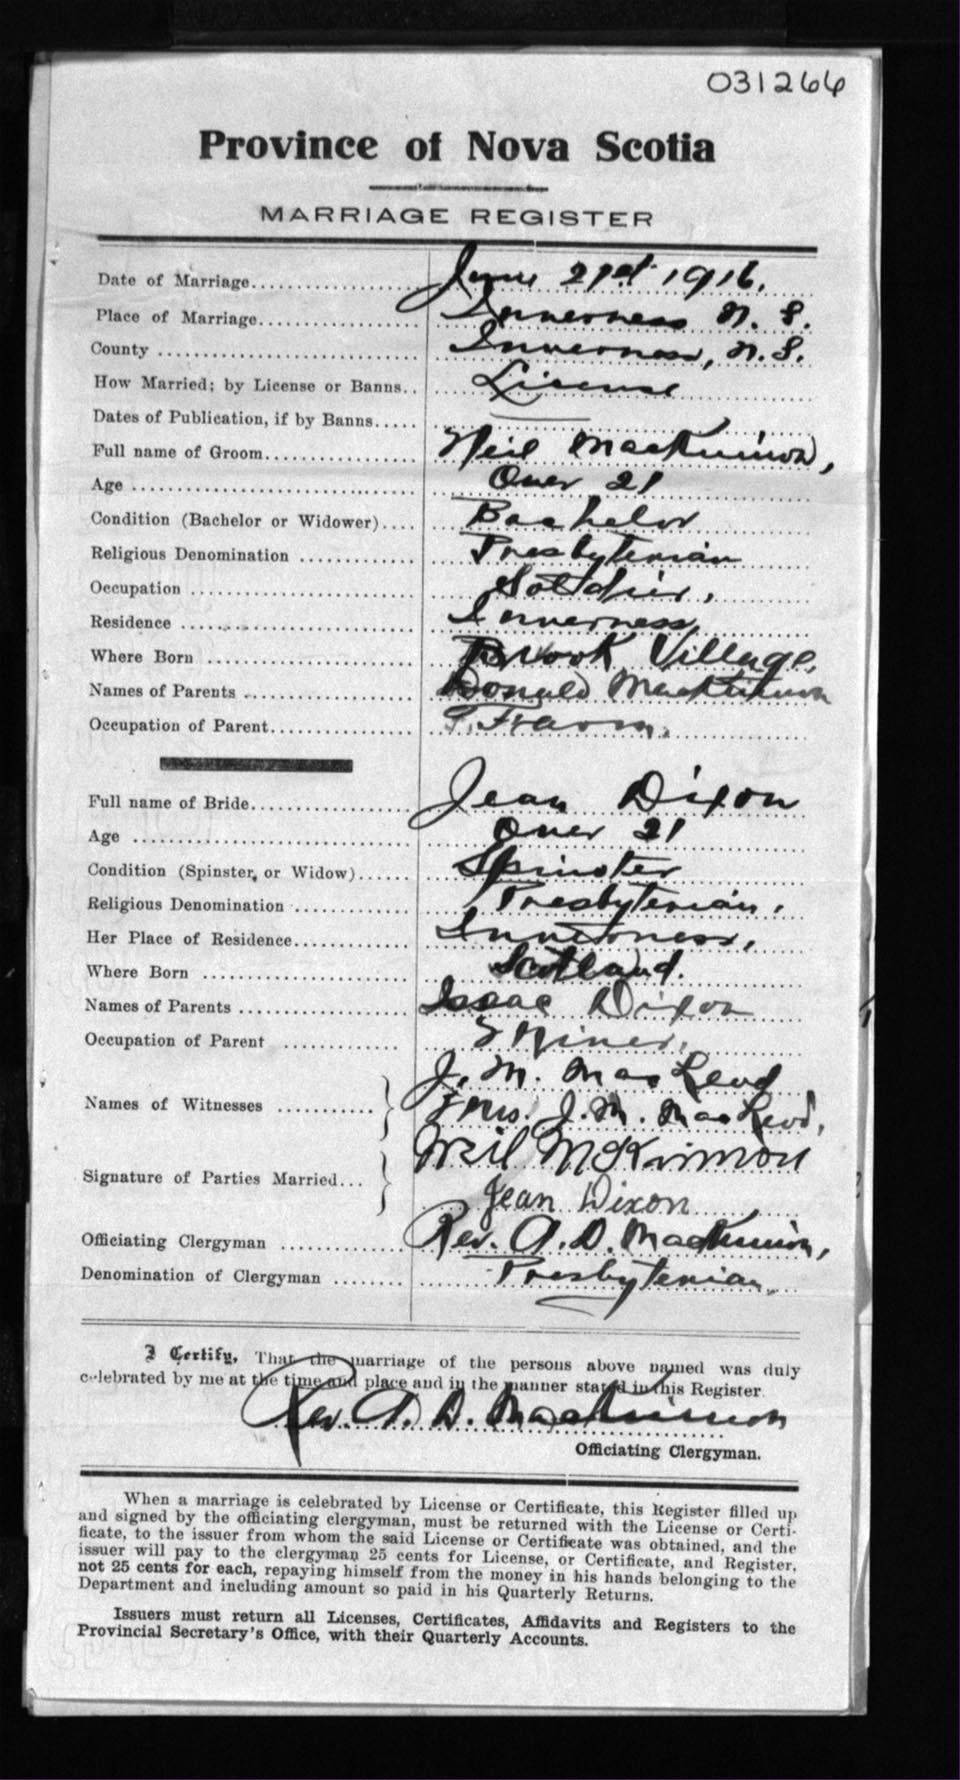 031266
Province of Nova Scotia
MARRIAGE REGISTER
Date of Marriage.................. June 21st 1916.
Place of Marriage.................. Inverness N. S.
County .................. Inverness, N. S.
How Married; by License or Banns.. License
Dates of Publication, if by Banns..... —
Full name of Groom.................. Neil MacKinnon,
Age .................. Over 21
Condition (Bachelor or Widower).... Bachelor
Religious Denomination .................. Presbyterian
Occupation .................. Soldier.
Residence .................. Inverness,
Where Born .................. Brook Village,
Names of Parents .................. Donald MacKinnon
Occupation of Parent.................. Farm.
Full name of Bride.................. Jean Dixon
Age .................. Over 21
Condition (Spinster, or Widow)...... Spinster
Religious Denomination .................. Presbyterian.
Her Place of Residence.................. Inverness,
Where Born .................. Scotland.
Names of Parents .................. Isaac Dixon
Occupation of Parent .................. Miner.
J. M. MacLeod
Names of Witnesses .......... } Mrs. J. M. MacLeod,
Neil McKinnon
Signature of Parties Married... }
Jean Dixon
Officiating Clergyman .................. Rev. A. D. MacKinnon,
Denomination of Clergyman ........ Presbyterian
I Certify, That the marriage of the persons above named was duly
celebrated by me at the time and place and in the manner stated in this Register.
Rev. A. D. MacKinnon
Officiating Clergyman.
When a marriage is celebrated by License or Certificate, this Register filled up
and signed by the officiating clergyman, must be returned with the License or Certi-
ficate, to the issuer from whom the said License or Certificate was obtained, and the
issuer will pay to the clergyman 25 cents for License, or Certificate, and Register,
not 25 cents for each, repaying himself from the money in his hands belonging to the
Department and including amount so paid in his Quarterly Returns.
Issuers must return all Licenses, Certificates, Affidavits and Registers to the
Provincial Secretary's Office, with their Quarterly Accounts.